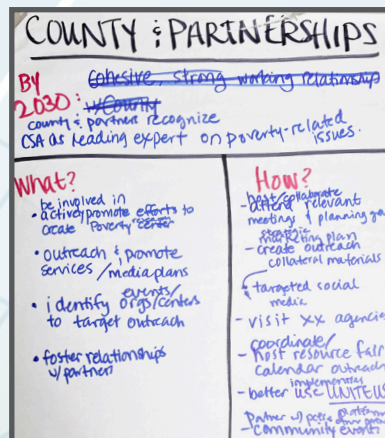 COUNTY & PARTNERSHIPS
BY
2030:
Cohesive, strong working relationship
w/County
county & partners recognize
CSA as leading expert on poverty-related
issues.
What?
be involved in
• actively promote efforts to
create Poverty center
• outreach & promote
services / media plans
• identify events/
orgs/centers
to target outreach
• foster relationships
w/partners
How?
- host/collaborate
attend relevant
meetings & planning
strategic
marketing plan
- create outreach
collateral materials
targeted social
media
- visit xx agencies
coordinate/
- host resource fair
calendar outreach
implementation
- better use UNITE US
partner w/
- community events